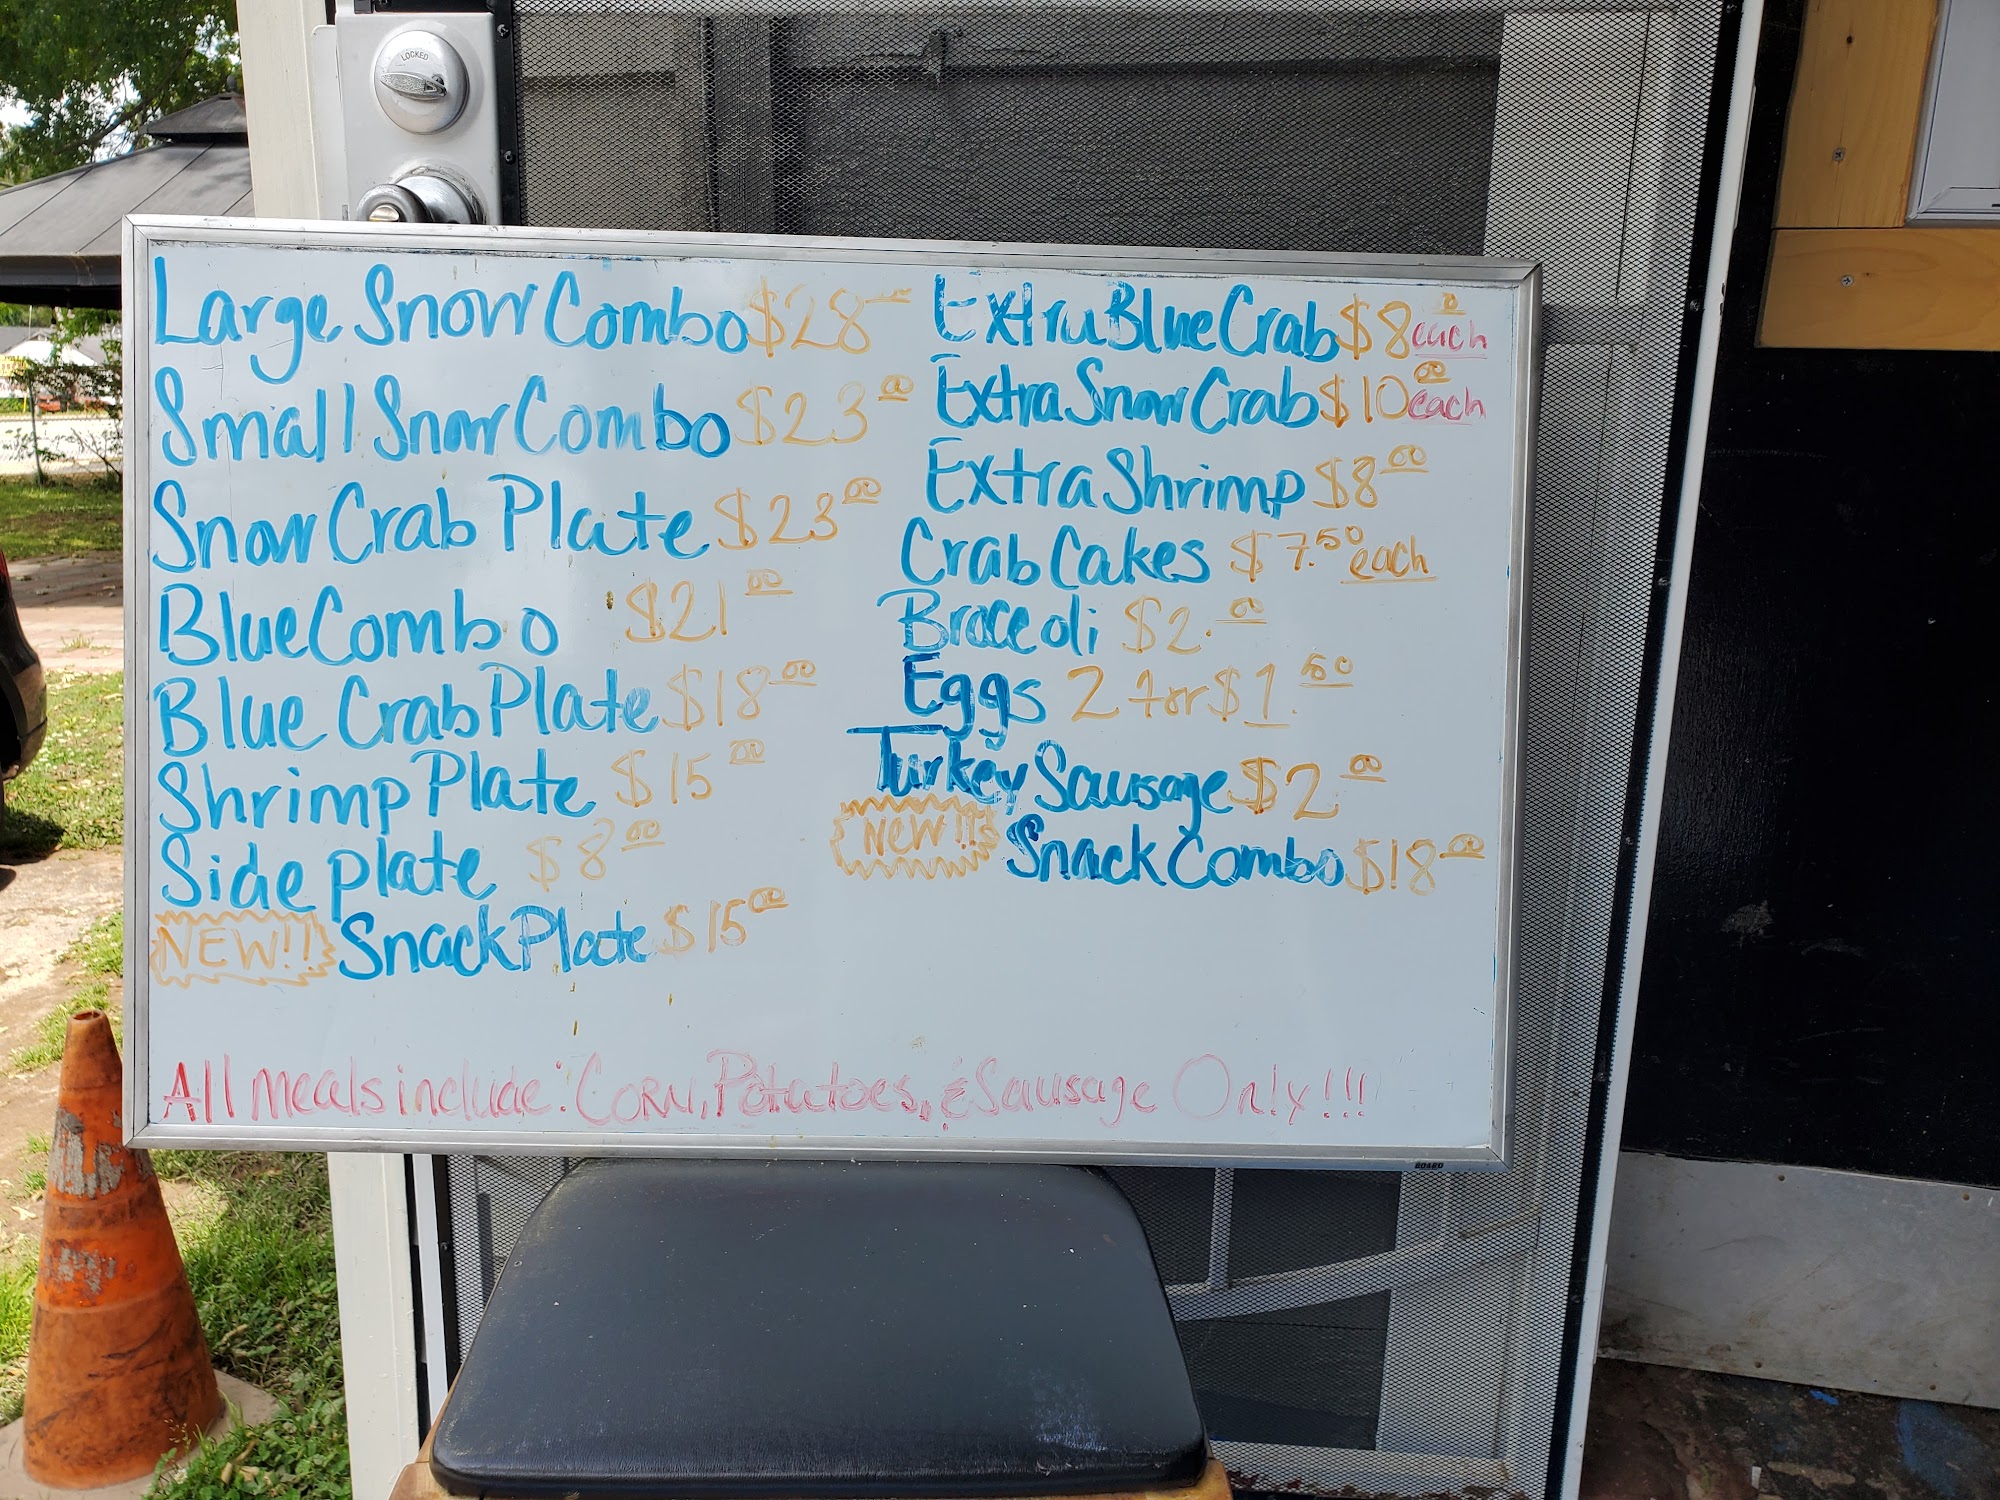 LOCKED
Large Snow Combo $28
Small Snow Combo $23.00
Snow Crab Plate $23.00
Blue Combo $21.00
Blue Crab Plate $18.00
Shrimp Plate $15.00
Side plate $8.00
NEW!! Snack Plate $15.00
Extra Blue Crab $8 each
Extra Snow Crab $10.00 each
Extra Shrimp $8.00
Crab Cakes $7.50 each
Broccoli $2.00
Eggs 2 for $1.50
Turkey Sausage $2.00
NEW!! Snack Combo $18.00
All meals include: Corn, Potatoes, & Sausage Only!!!
BOARD